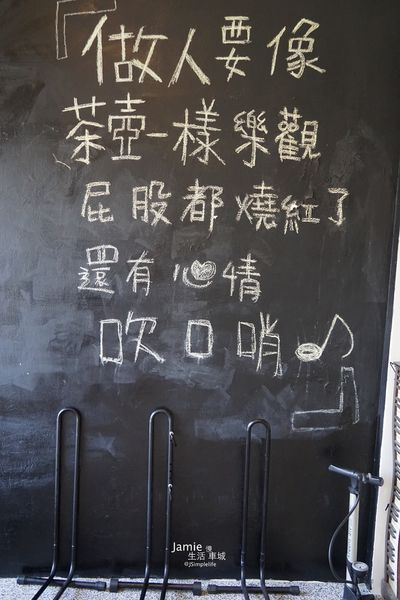 「做人要像
茶壺一樣樂觀
屁股都燒紅了
還有心情
吹口哨♪」
Jamie 優
生活 車城
@JSimplelife